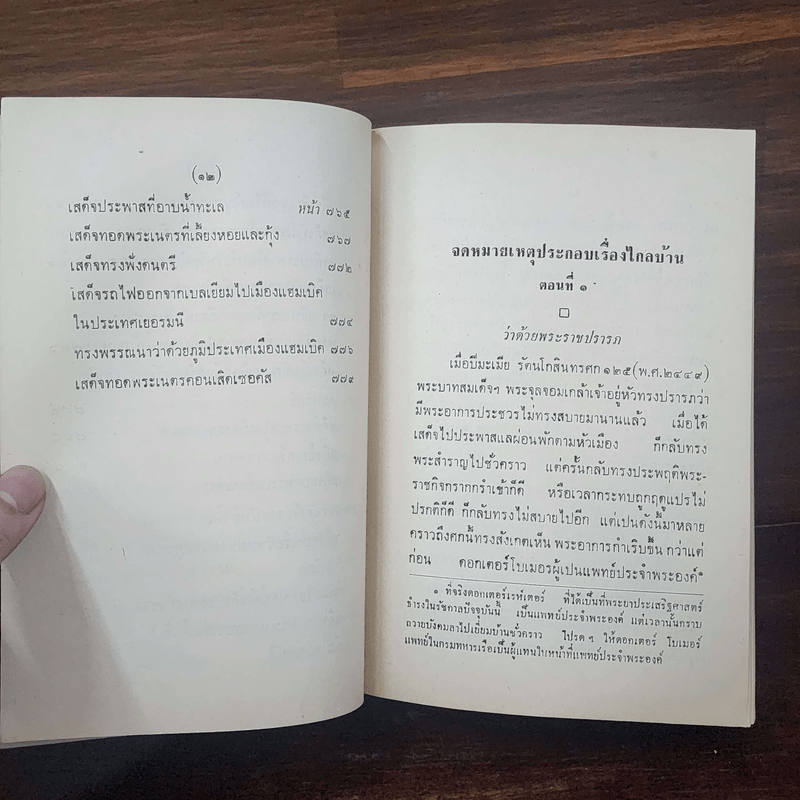 (๑๒)
เสด็จประพาสที่อาบน้ำทะเล หน้า ๗๖๕
เสด็จทอดพระเนตรที่เลี้ยงหอยและกุ้ง ๗๖๗
เสด็จทรงฟังดนตรี ๗๗๒
เสด็จรถไฟออกจากเบลเยียมไปเมืองแฮมเบิค
ในประเทศเยอรมนี ๗๗๔
ทรงพรรณนาว่าด้วยภูมิประเทศเมืองแฮมเบิค ๗๗๖
เสด็จทอดพระเนตรคอนเสิตเซอคัส ๗๗๙
จดหมายเหตุประกอบเรื่องไกลบ้าน
ตอนที่ ๑
ว่าด้วยพระราชปรารภ
เมื่อปีมะเมีย รัตนโกสินทรศก ๑๒๕ (พ.ศ. ๒๔๔๙)
พระบาทสมเด็จฯ พระจุลจอมเกล้าเจ้าอยู่หัวทรงปรารภว่า
มีพระอาการประชวรไม่ทรงสบายมานานแล้ว เมื่อได้
เสด็จไปประพาสแลผ่อนพักตามหัวเมือง ก็กลับทรง
พระสำราญไปชั่วคราว แต่ครั้นกลับทรงประพฤติพระ-
ราชกิจรากกรำเข้าก็ดี หรือเวลากระทบถูกฤดูแปรไม่
ปรกติก็ดี ก็กลับทรงไม่สบายไปอีก แต่เปนดังนี้มาหลาย
คราวถึงศกนี้ทรงสังเกตเห็น พระอาการกำเริบขึ้น กว่าแต่
ก่อน ดอกเตอร์โบเมอร์ผู้เปนแพทย์ประจำพระองค์๑
๑ ที่จริงดอกเตอร์เรห์เตอร์ ที่ได้เป็นที่พระยาประเสริฐศาสตร์
ธำรงในรัชกาลปัจจุบันนี้ เป็นแพทย์ประจำพระองค์ แต่เวลานั้นกราบ
ถวายบังคมลาไปเยี่ยมบ้านชั่วคราว โปรดฯ ให้ดอกเตอร์ โบเมอร์
แพทย์ในกรมทหารเรือเป็นผู้แทนในหน้าที่แพทย์ประจำพระองค์